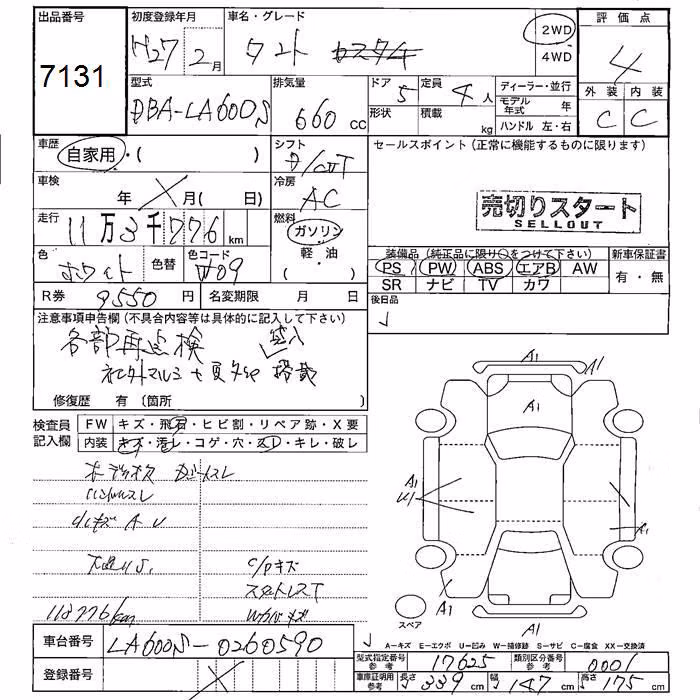 出品番号
7131
初度登録年月
H27年2月
車名・グレード
タント カスタム
2WD
4WD
評価点
4
型式
DBA-LA600S
排気量
660cc
ドア
5
定員
4人
形状
積載
kg
ディーラー・並行
モデル年式 年
ハンドル 左・右
外装 内装
C C
車歴
自家用・( )
シフト
車検
年 月( 日)
冷房
AC
セールスポイント(正常に機能するものに限ります)
売切りスタート
SELLOUT
走行
11万3千776km
燃料
ガソリン
軽・油
色
ホワイト
色替
色コード
W09
装備品(純正品に限り○をつけて下さい)
PS PW ABS エアB AW
SR ナビ TV カワ
新車保証書
有・無
R券 9550円
名変期限 月 日
後日品
注意事項申告欄(不具合内容等は具体的に記入して下さい)
各部再点検
修復歴 有〔箇所 〕
検査員記入欄
FW キズ・飛石・ヒビ割・リペア跡・X要
内装 キズ・汚レ・コゲ・穴・スレ・キレ・破レ
ハンドルスレ
C/Pキズ
113776km
A1
A1
A1
A1
U1
A1
A1
A1
スペア
A-キズ E-エクボ U-凹み W-補修跡 S-サビ C-腐食 XX-交換済
車台番号 LA600S-0260590
登録番号
型式指定番号参考 17625
類別区分番号参考 0001
車庫証明用参考 長さ339cm 幅147cm 高さ175cm